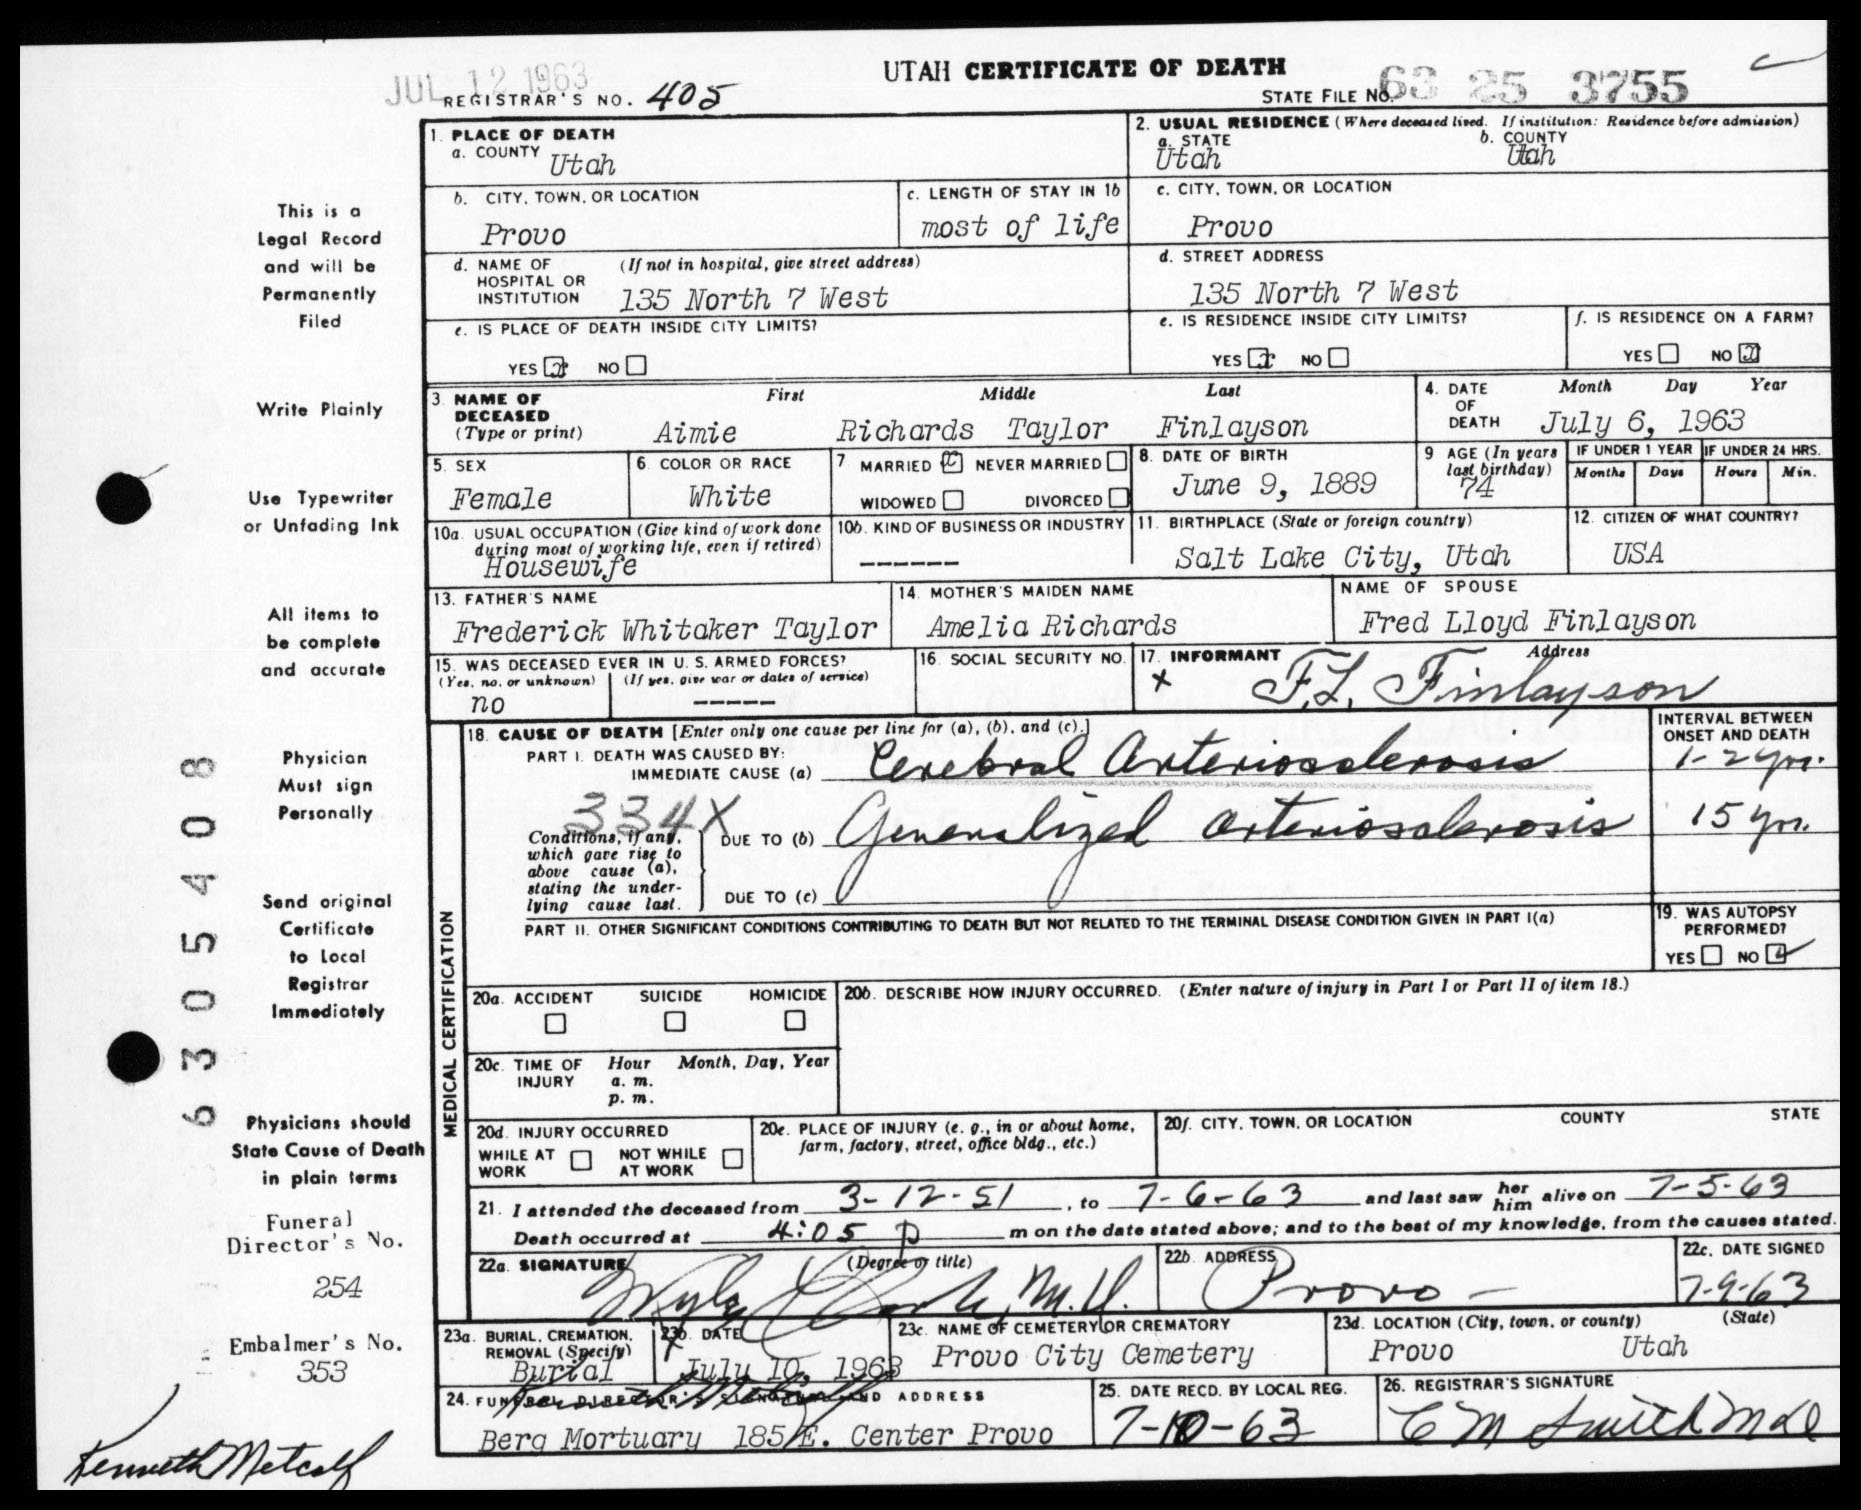 JUL 12 1963
UTAH CERTIFICATE OF DEATH
REGISTRAR'S NO. 405
STATE FILE NO. 63 25 3755
1. PLACE OF DEATH
a. COUNTY Utah
2. USUAL RESIDENCE (Where deceased lived. If institution: Residence before admission)
a. STATE Utah
b. COUNTY Utah
b. CITY, TOWN, OR LOCATION
Provo
c. LENGTH OF STAY IN 1b
most of life
c. CITY, TOWN, OR LOCATION
Provo
d. NAME OF HOSPITAL OR INSTITUTION (If not in hospital, give street address)
135 North 7 West
d. STREET ADDRESS
135 North 7 West
e. IS PLACE OF DEATH INSIDE CITY LIMITS?
YES x NO
e. IS RESIDENCE INSIDE CITY LIMITS?
YES x NO
f. IS RESIDENCE ON A FARM?
YES NO x
3. NAME OF DECEASED (Type or print)
First Middle Last
Aimie Richards Taylor Finlayson
4. DATE OF DEATH
Month Day Year
July 6, 1963
5. SEX
Female
6. COLOR OR RACE
White
7 MARRIED x NEVER MARRIED
WIDOWED DIVORCED
8. DATE OF BIRTH
June 9, 1889
9 AGE (In years last birthday)
74
IF UNDER 1 YEAR
Months Days
IF UNDER 24 HRS.
Hours Min.
10a. USUAL OCCUPATION (Give kind of work done during most of working life, even if retired)
Housewife
10b. KIND OF BUSINESS OR INDUSTRY
------
11. BIRTHPLACE (State or foreign country)
Salt Lake City, Utah
12. CITIZEN OF WHAT COUNTRY?
USA
13. FATHER'S NAME
Frederick Whitaker Taylor
14. MOTHER'S MAIDEN NAME
Amelia Richards
NAME OF SPOUSE
Fred Lloyd Finlayson
15. WAS DECEASED EVER IN U. S. ARMED FORCES?
(Yes, no, or unknown) (If yes, give war or dates of service)
no -----
16. SOCIAL SECURITY NO.
17. INFORMANT Address
x F.L. Finlayson
MEDICAL CERTIFICATION
18. CAUSE OF DEATH [Enter only one cause per line for (a), (b), and (c).]
INTERVAL BETWEEN ONSET AND DEATH
PART I. DEATH WAS CAUSED BY:
IMMEDIATE CAUSE (a) Cerebral Arteriosclerosis 1-2 yrs.
334X
Conditions, if any, which gave rise to above cause (a), stating the underlying cause last.
DUE TO (b) Generalized arteriosclerosis 15 yrs.
DUE TO (c)
PART II. OTHER SIGNIFICANT CONDITIONS CONTRIBUTING TO DEATH BUT NOT RELATED TO THE TERMINAL DISEASE CONDITION GIVEN IN PART I(a)
19. WAS AUTOPSY PERFORMED?
YES NO
20a. ACCIDENT SUICIDE HOMICIDE
20b. DESCRIBE HOW INJURY OCCURRED. (Enter nature of injury in Part I or Part II of item 18.)
20c. TIME OF INJURY
Hour Month, Day, Year
a. m.
p. m.
20d. INJURY OCCURRED
WHILE AT WORK NOT WHILE AT WORK
20e. PLACE OF INJURY (e. g., in or about home, farm, factory, street, office bldg., etc.)
20f. CITY, TOWN, OR LOCATION COUNTY STATE
21. I attended the deceased from 3-12-51, to 7-6-63 and last saw her him alive on 7-5-63
Death occurred at 4:05 p m on the date stated above; and to the best of my knowledge, from the causes stated.
22a. SIGNATURE (Degree or title)
M.D.
22b. ADDRESS
Provo
22c. DATE SIGNED
7-9-63
23a. BURIAL, CREMATION, REMOVAL (Specify)
Burial
23b. DATE
July 10, 1963
23c. NAME OF CEMETERY OR CREMATORY
Provo City Cemetery
23d. LOCATION (City, town, or county) (State)
Provo Utah
24. FUNERAL DIRECTOR'S SIGNATURE AND ADDRESS
Kenneth Metcalf
Berg Mortuary 185 E. Center Provo
25. DATE RECD. BY LOCAL REG.
7-10-63
26. REGISTRAR'S SIGNATURE
C M Smith MD
This is a
Legal Record
and will be
Permanently
Filed
Write Plainly
Use Typewriter
or Unfading Ink
All items to
be complete
and accurate
Physician
Must sign
Personally
Send original
Certificate
to Local
Registrar
Immediately
Physicians should
State Cause of Death
in plain terms
Funeral
Director's No.
254
Embalmer's No.
353
Kenneth Metcalf
6305408